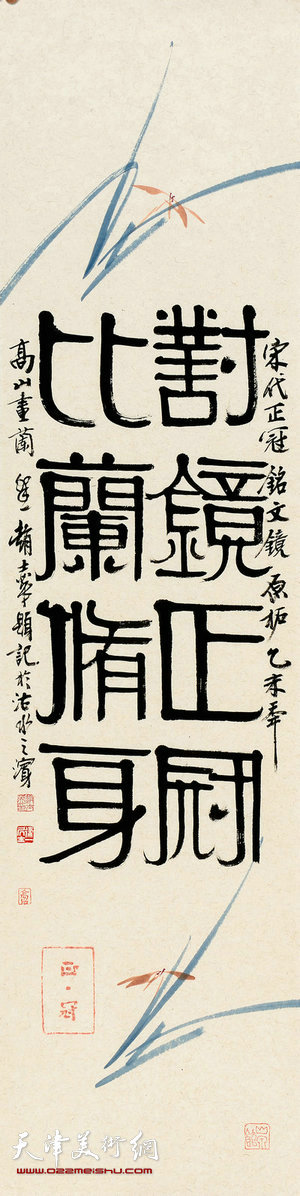 宋代正冠銘文鏡原拓乙未年
對鏡正冠
比蘭脩身
高山畫蘭
趙士英題記於沽水之濱
正·冠
天津美術網
www.022meishu.com